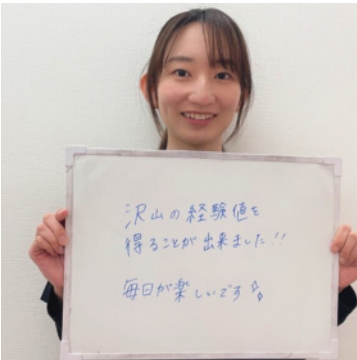 沢山の経験値を
得ることが出来ました!!
毎日が楽しいです